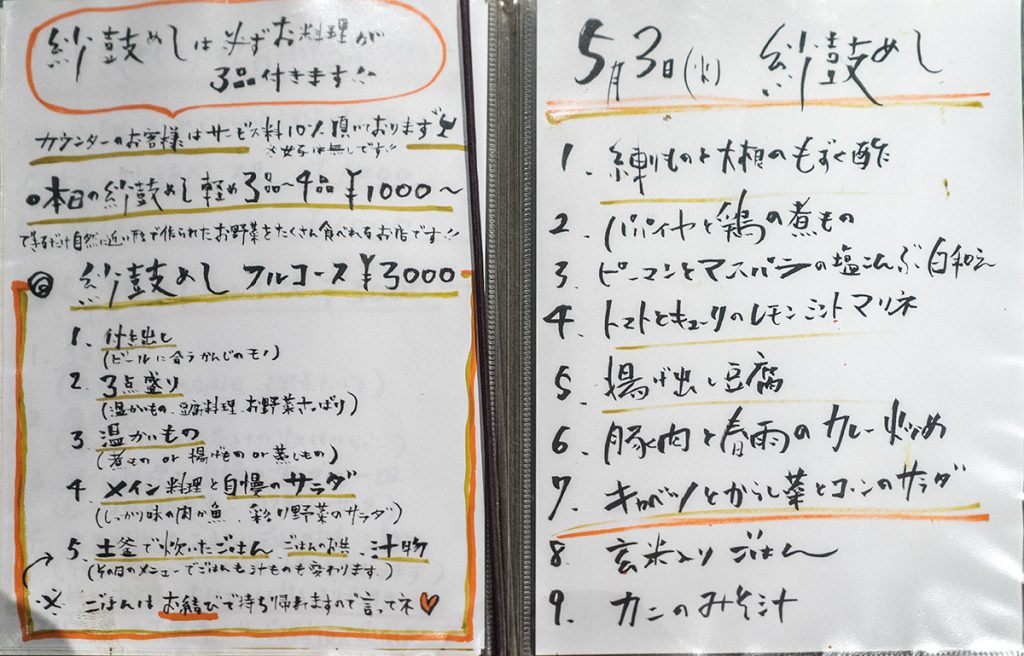 紗鼓めしは必ずお料理が
3品付きます!!
カウンターのお客様はサービス料10%頂いております
※女子は無しです!!
本日の紗鼓めし軽め3品〜4品¥1000〜
できるだけ自然に近い形で作られたお野菜をたくさん食べれるお店です!!
紗鼓めし フルコース¥3000
1. 付き出し
(ビールに合うかんじのモノ)
2. 3点盛り
(温かいもの 豆腐料理 お野菜さっぱり)
3. 温かいもの
(煮もの or 揚げもの or 蒸しもの)
4. メイン料理と自慢のサラダ
(しっかり味の肉か魚、彩り野菜のサラダ)
5. 土釜で炊いたごはん ごはんの供 汁物
(その日のメニューでごはんも汁ものも変わります)
※ ごはんは お結びで持ち帰れますので言ってネ♥
5月3日(火) 紗鼓めし
1. 練りものと大根のもずく酢
2. パパイヤと鶏の煮もの
3. ピーマンとアスパラの塩こんぶ白和え
4. トマトとキューリのレモンミントマリネ
5. 揚げ出し豆腐
6. 豚肉と春雨のカレー炒め
7. キャベツとからし菜とコーンのサラダ
8. 玄米入りごはん
9. カニのみそ汁